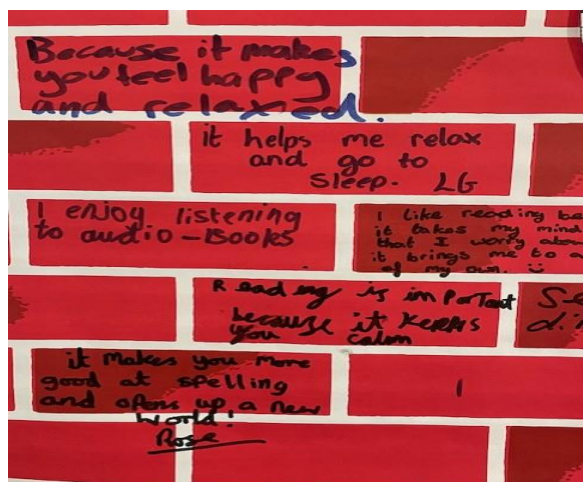 Because it makes
you feel happy
and relaxed.
it helps me relax
and go to
sleep. LG
I enjoy listening
to audio-Books
I like reading be
it takes my mind
that I worry abou
it brings me to a
of my own.
Reading is imPortant
because it Keeps
you calm
Se
di
it makes you more
good at spelling
and opens up a new
world!
Rose